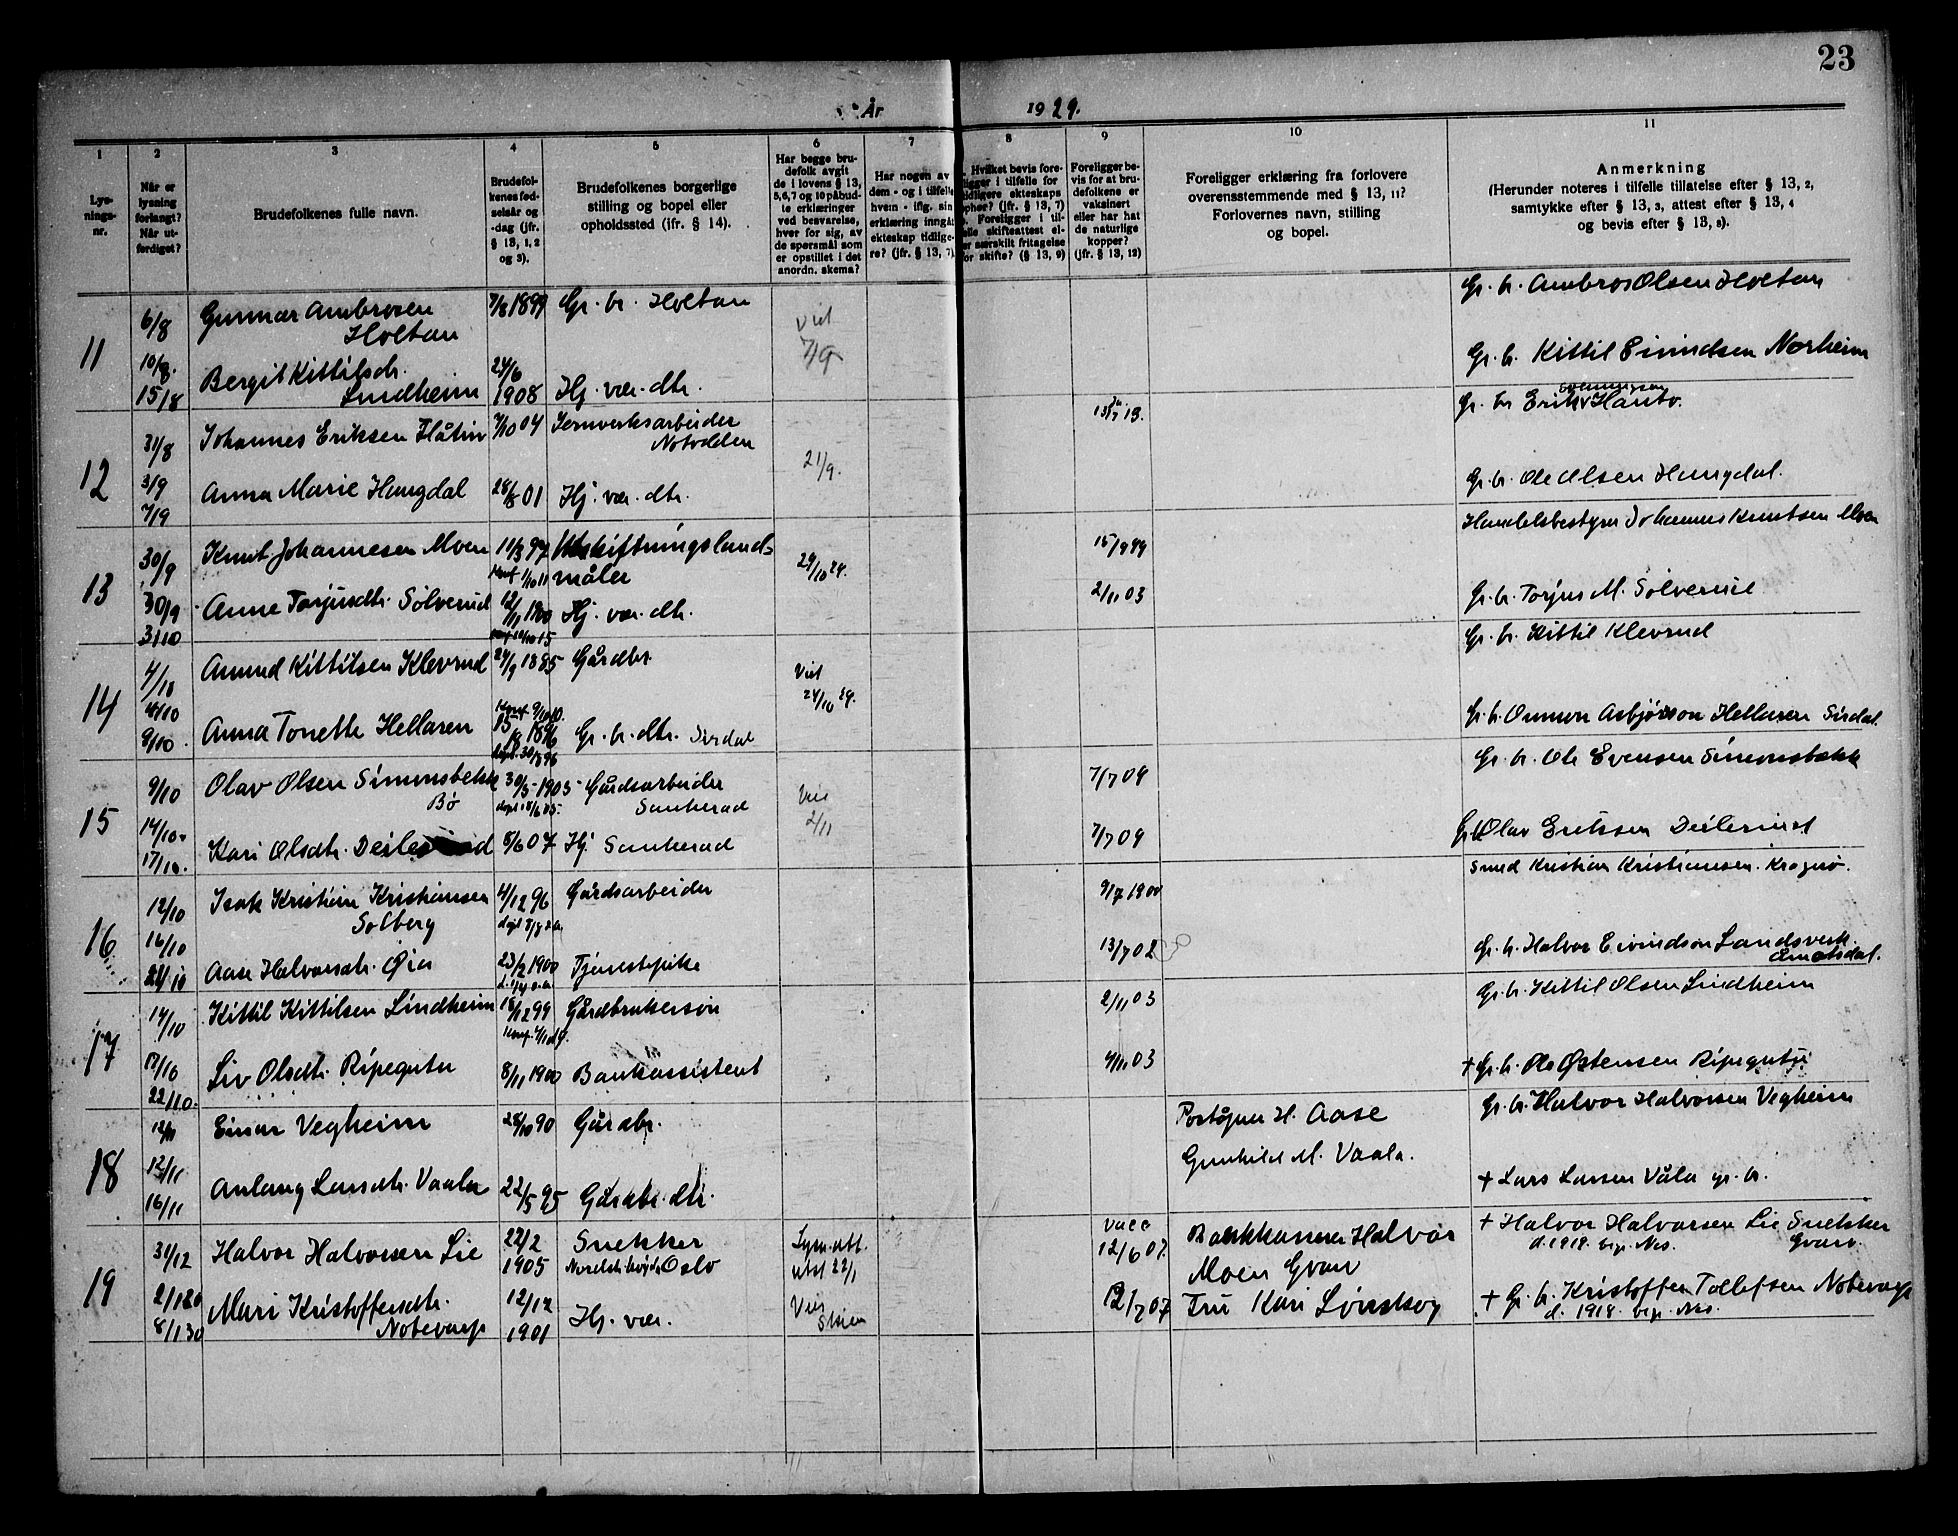 23
År 1929.
1
Lys-
nings-
nr.
2
Når er
lysning
forlangt?
Når ut-
ferdiget?
3
Brudefolkenes fulle navn.
4
Brudefol-
kenes fød-
selsår og
-dag (jfr.
§ 13, 1, 2
og 3).
5
Brudefolkenes borgerlige
stilling og bopel eller
opholdssted (ifr. § 14).
6
Har begge bru-
defolk avgit
de i lovens § 13,
5, 6, 7 og 10 påbud-
te erklæringer
ved besvarelse,
hver for sig, av
de spørsmål som
er opstillet i det
anordn. skema?
7
Har nogen av
dem - og i tilfelle
hvem - iflg. sin
erklæring inngått
ekteskap tidlige-
re? (jfr. § 13, 7)
8
Hvilket bevis fore-
ligger i tilfelle for
tidligere ekteskaps
opphør? (jfr. § 13, 7)
Foreligger i til-
felle skifteattest el-
ler særskilt fritagelse
for skifte? (§ 13, 9)
9
Foreligger be-
vis for at bru-
defolkene er
vaksinert
eller har hat
de naturlige
kopper?
(jfr. § 13, 12)
10
Foreligger erklæring fra forlovere
overensstemmende med § 13, 11?
Forlovernes navn, stilling
og bopel.
11
Anmerkning
(Herunder noteres i tilfelle tillatelse efter § 13, 2,
samtykke efter § 13, 3, attest efter § 13, 4
og bevis efter § 13, 8).
11
6/8
10/8.
15/8
Gunnar Ambrosen
Holtan
7/8 1899
Gr. br. Holtan
Viet
7/9
Gr. br. Ambros Olsen Holtan
Bergit Kittilsdtr.
Lindheim
24/6
1908
Hj. vær. dtr.
Gr. br. Kittil Eivindsen Norheim
12
31/8
3/9
7/9
Johannes Eriksen Håtun
7/10 04
Jernverksarbeider
Notodden
21/9.
Gr. br Erik
Anna Marie Haugdal
28/8 01
Hj. vær. dtr.
Gr. br. Ole Olsen Haugdal.
13
30/9
30/9
3/10
Knut Johannesen Moen
11/3 97
Konf. 1/10 11
Utskiftningsland-
måler
29/10 29.
15/9 99
Handelsbestyrer Johannes Knutsen Moen
Anne Torjusdtr. Sølverud
12/11 1900
Konf. 10/10 15
Hj. vær. dtr.
2/11 03
Gr. br. Torjus M. Sølverud
14
4/10
4/10
9/10.
Amund Kittilsen Klevrud
24/9 1885
Gårdbr.
Viet
24/10 29.
Gr. br. Kittil Klevrud
Anna Tonette Hellaren
15/8 1896
døpt 30/8 96
Gr. br. dtr. Sirdal
Gr. br. Asbjørson Hellaren Sirdal.
15
9/10
14/10.
17/10.
Olav Olsen Simonsbekk
Bø
30/5-1905
Gårdsarbeider
Sauherad
Viet
2/11
7/7 09
Gr. br. Ole Evensen Simonsbekk
Kari Olsdtr.
8/6 07
Hj. Sauherad
7/7 09
Gr. Olav Eriksen Deilerud
16
12/10
16/10
22/10
Isak Kristian Kristiansen
Solberg
4/12 96
Gårdsarbeider
9/7 1900
Smed Kristian Kristiansen. Kragerø.
Aase Halvorsdtr. Øia
23/2 1900
Tjenestepike
13/7 02
Gr. br. Halvor Eivindson Landsverk
Åmotsdal.
17
14/10
17/10
22/10.
Kittil Kittilsen Lindheim
18/12 99
Gårdbrukersøn
2/11 03
Gr. br. Kittil Olsen Lindheim
Liv Olsdtr. Ripegutu
8/11 1900
Bankassistent
4/11 03
+ Gr. br. Ole Østensen Ripegutu
18
12/11
12/11
16/11
Einar Vegheim
28/10 90
Gårdbr.
Poståpner H. Aase
Gunhild M. Vaala.
Gr. br. Halvor Halvorsen Vegheim
Anlaug Larsdtr. Vaala
22/5 95
Gårdbr. dtr.
+ Lars Larsen Våla gr. br.
19
31/12
2/1 30
8/1 30
Halvor Halvorsen Lie
22/2
1905
Snekker
Oslo
Lysn. att.
utst 22/1
Vacc
12/6 07.
Bankkasserer Halvor
Moen Gvarv
+ Halvor Halvorsen Lie Snekker
d. 1918. Nes. Gvarv.
Mari Kristoffersdtr.
Notevarp
12/12
1901
Hj. vær.
Viet
Skien
12/7 07
Fru Kari Lønskog
+ Gr. br. Kristoffer Tollefsen Notevarp
d. 1918. Nes.